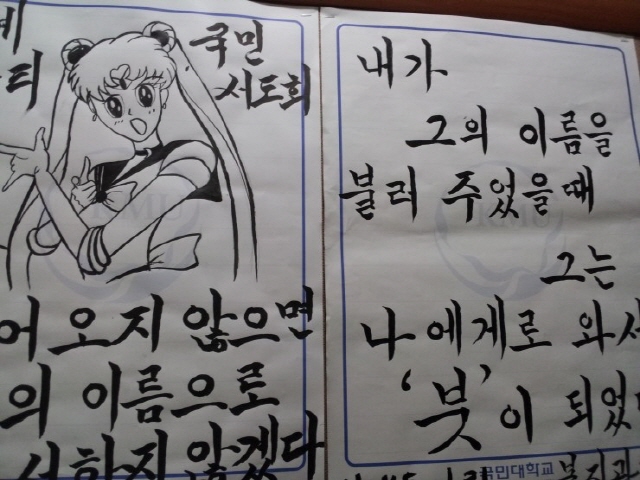 국민
서도회
오지 않으면
의 이름으로
하지 않겠다
내가
그의 이름을
불러 주었을때
그는
나에게로 와서
'붓'이 되었
국민대학교